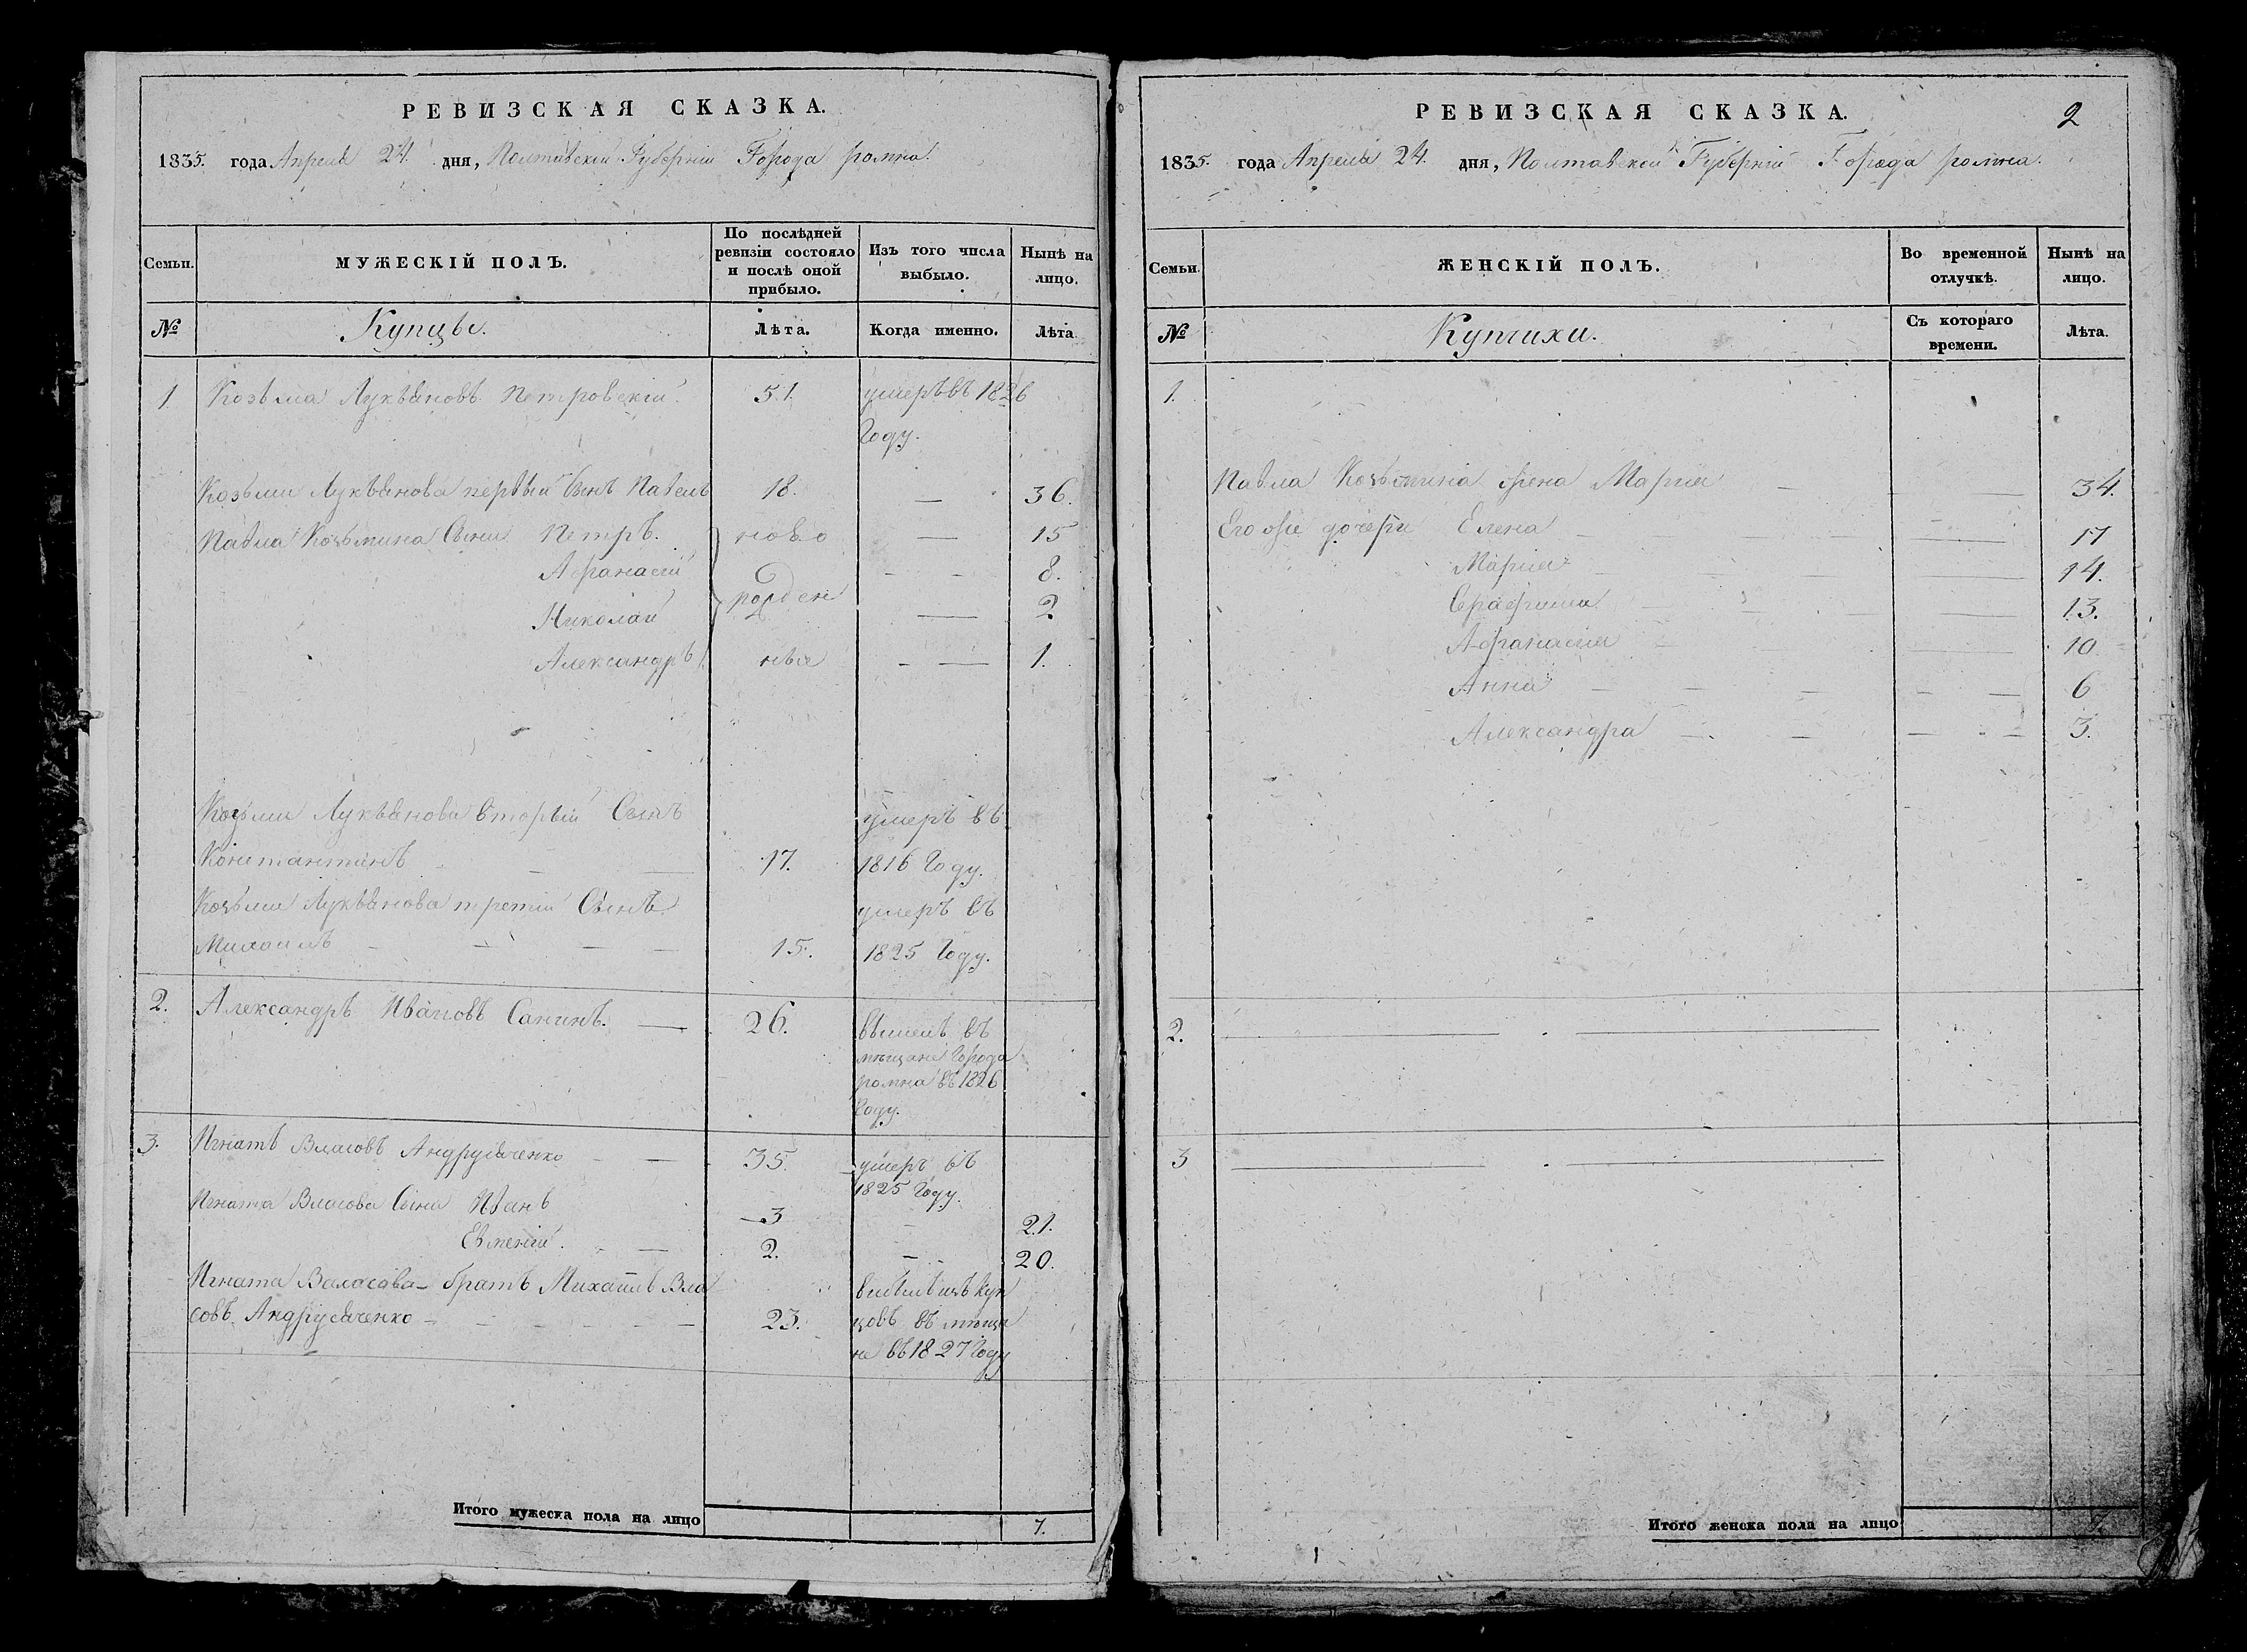 РЕВИЗСКАЯ СКАЗКА.
1835. года Апреля 24. дня, Полтавской Губерніи Города ромна.
Семьи.
МУЖЕСКІЙ ПОЛЪ.
По послѣдней ревизіи состояло и послѣ оной прибыло.
Изъ того числа выбыло.
Нынѣ на лицо.
№
Купцы.
Лѣта.
Когда именно.
Лѣта.
1 Козьма Лукьяновъ Петровскій. 51. умеръ въ 1826
Году.
Козьмы Лукьянова первый Сынъ Павелъ 18. — 36.
Павла Козьмина Сыны Петръ. ново — 15
Афанасий — — 8.
рожден
Николай — 2
Александръ ные — — 1.
Козьмы Лукьянова вторый Сынъ умеръ въ
Константинъ — — 17. 1816 Году.
Козьмы Лукьянова третий Сынъ умеръ въ
Михаилъ — — — — 15. 1825 Году.
2. Александръ Ивановъ Санинъ. — 26. вышелъ въ
мещане Города
ромна въ 1826
Году.
3. Игнатъ Власовъ Андрусяченко — — 35. умеръ въ
1825 Году.
Игната Власова Сыны Иванъ 3 — 21.
Евмений. — — 2. — 20.
Игната Валасова братъ Михаилъ Вла
совъ Андрусяченко — — — — — — 23.
изъ куп
цовъ въ меща
не въ 1827 Году
Итого мужеска пола на лицо 7.
РЕВИЗСКАЯ СКАЗКА.
2
1835. года Апреля 24. дня, Полтавской Губерніи Города ромна.
Семьи.
ЖЕНСКІЙ ПОЛЪ.
Во временной отлучкѣ.
Нынѣ на лицо.
№
Купчихи.
Съ котораго времени.
Лѣта.
1.
Павла Козьмина жена Мария — — 34.
Его же дочери Елена — — 17
Мария — — 14.
Серафима — — 13.
Афанасия — — 10
Анна — — — — — 6
Александра — — — — 3.
2. — . —
3 — . —
Итого женска пола на лицо 7.